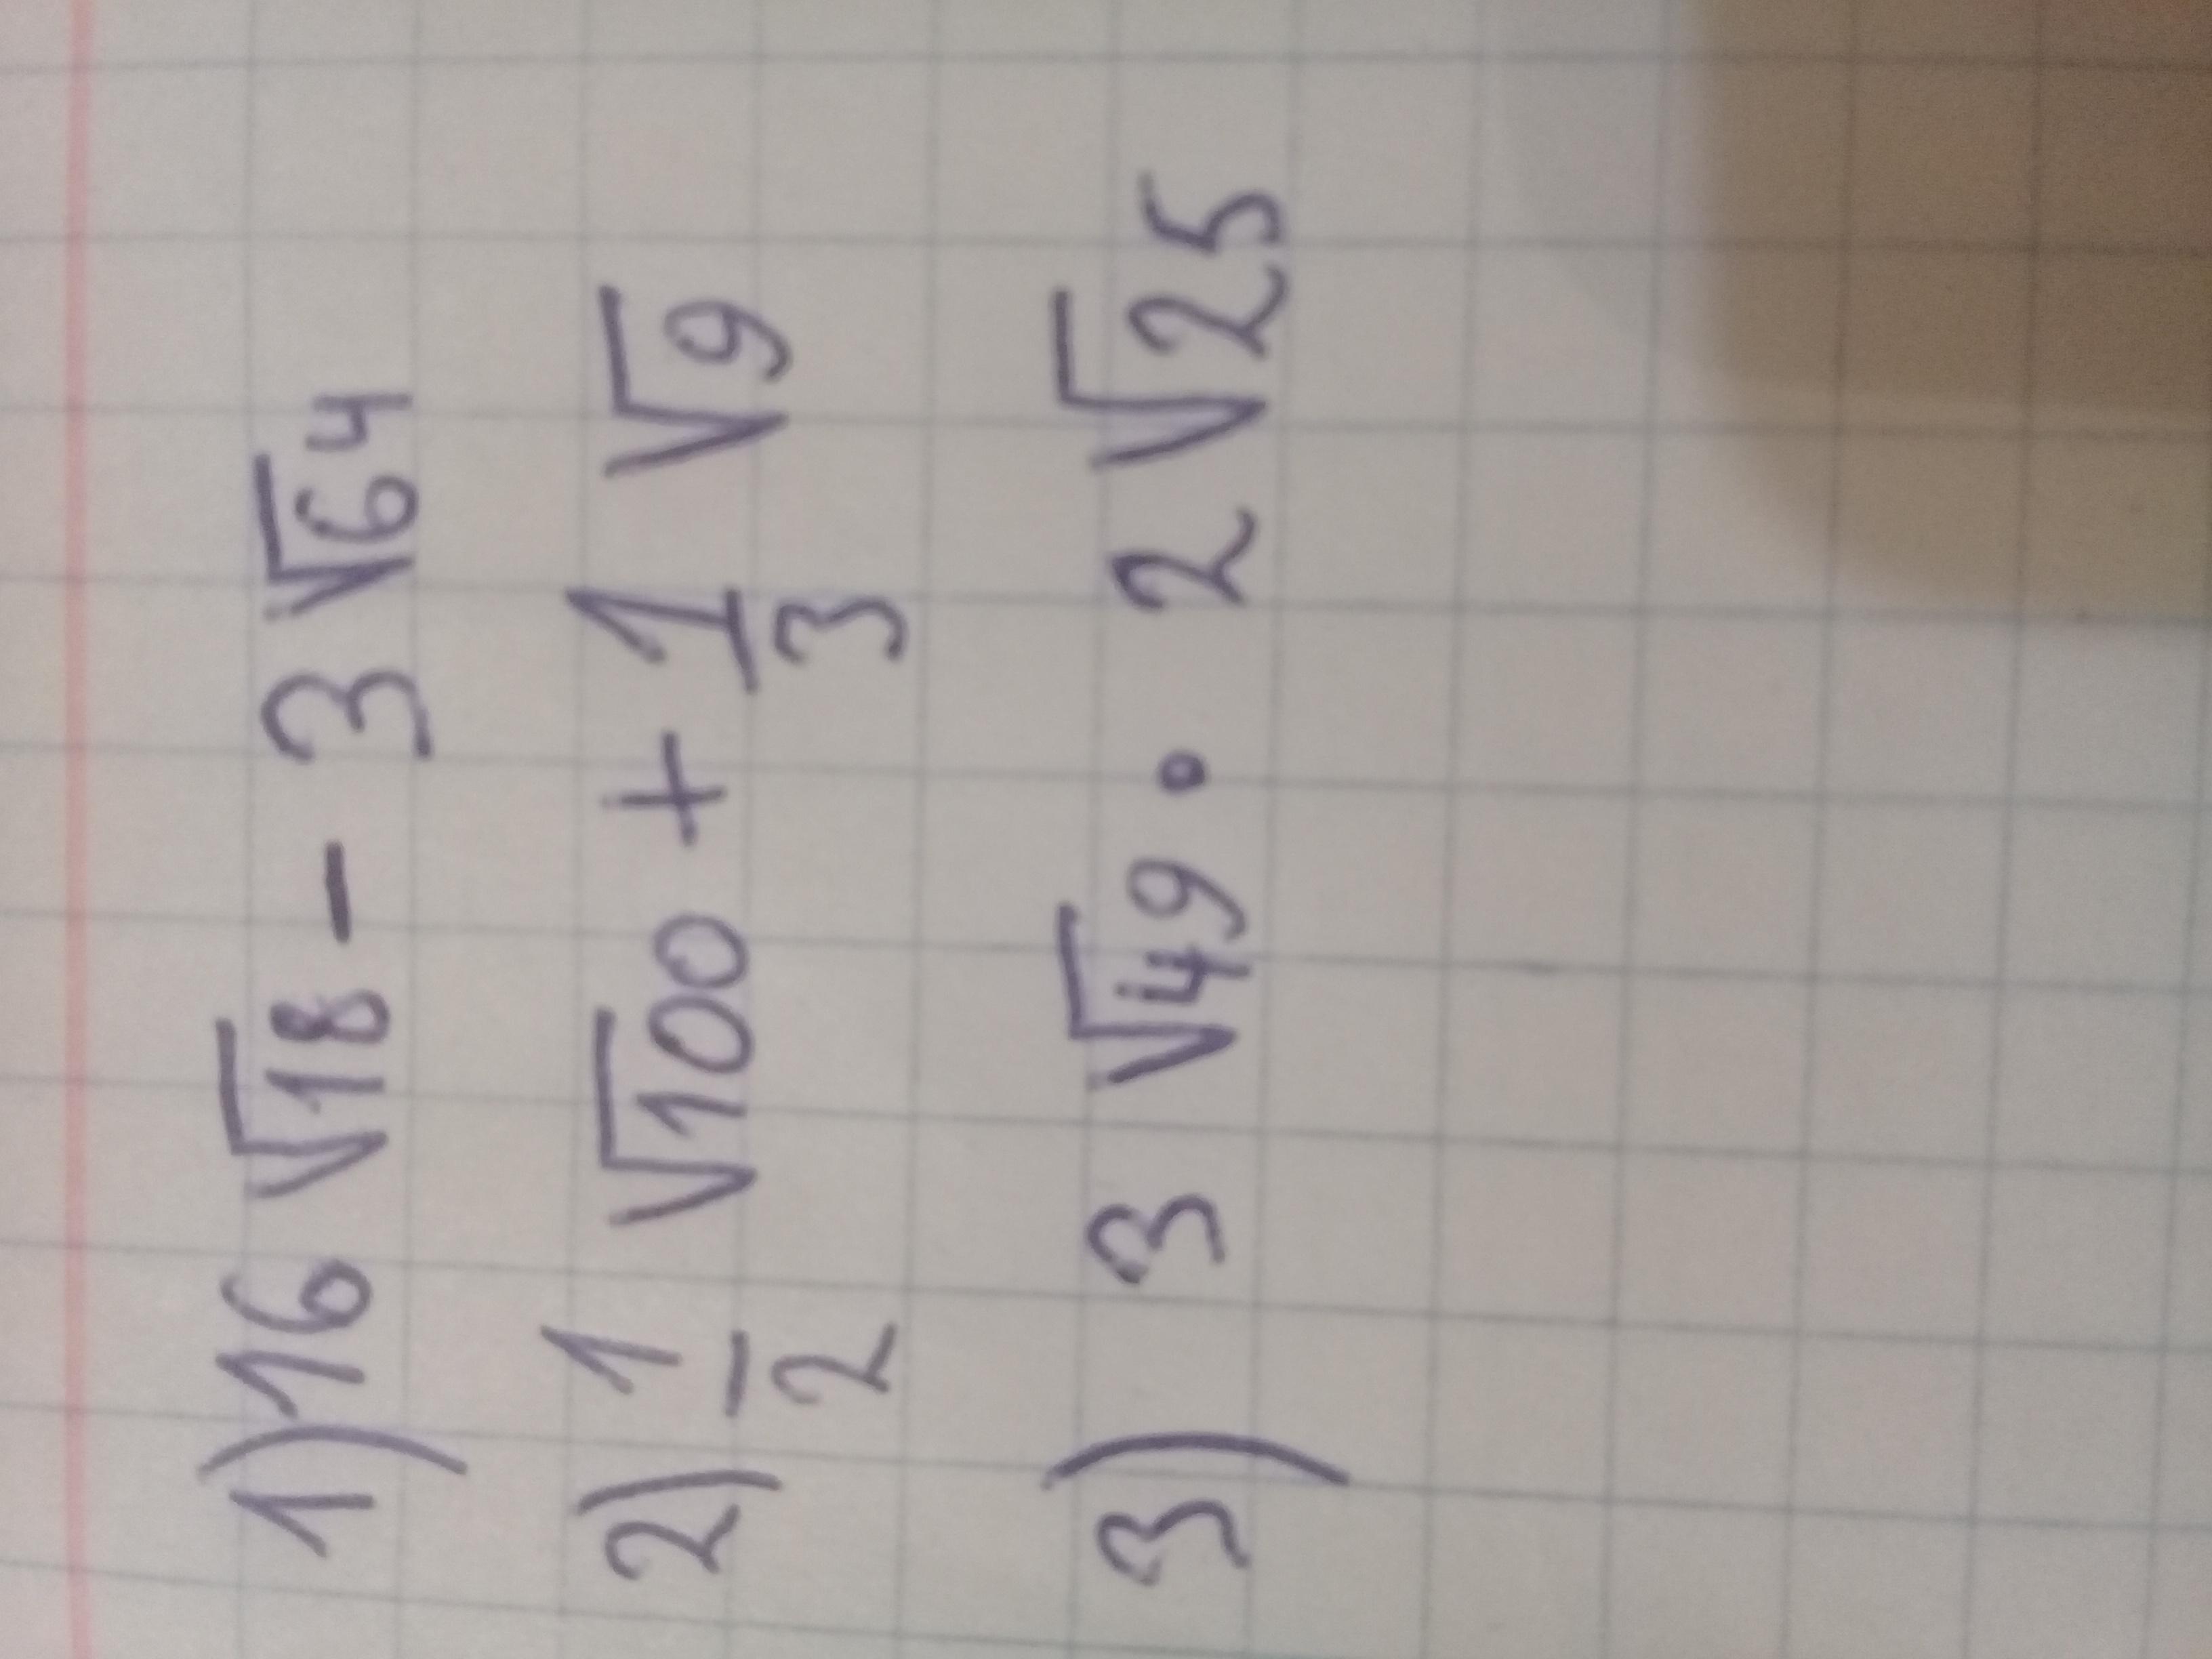 1) 16 √18 - 3 √64
2) 1/2 √100 + 1/3 √9
3) 3 √49 · 2 √25